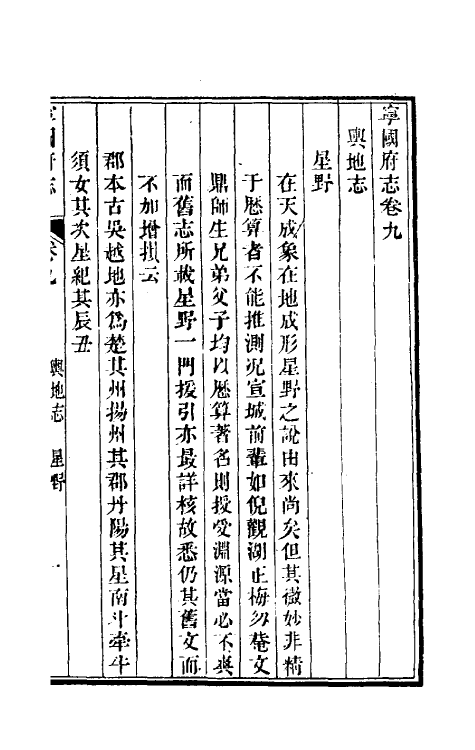 寧國府志卷九
輿地志
星野
在天成象在地成形星野之說由來尚矣但其微妙非精
于厯算者不能推測况宣城前輩如倪觀湖正梅勿菴文
鼎師生兄弟父子均以厯算著名則授受淵源當必不爽
而舊志所載星野一門援引亦最詳核故悉仍其舊文而
不加增損云
郡本古吳越地亦爲楚其州揚州其郡丹陽其星南斗牽牛
須女其次星紀其辰丑
寧國府志 卷九 輿地志 星野 一